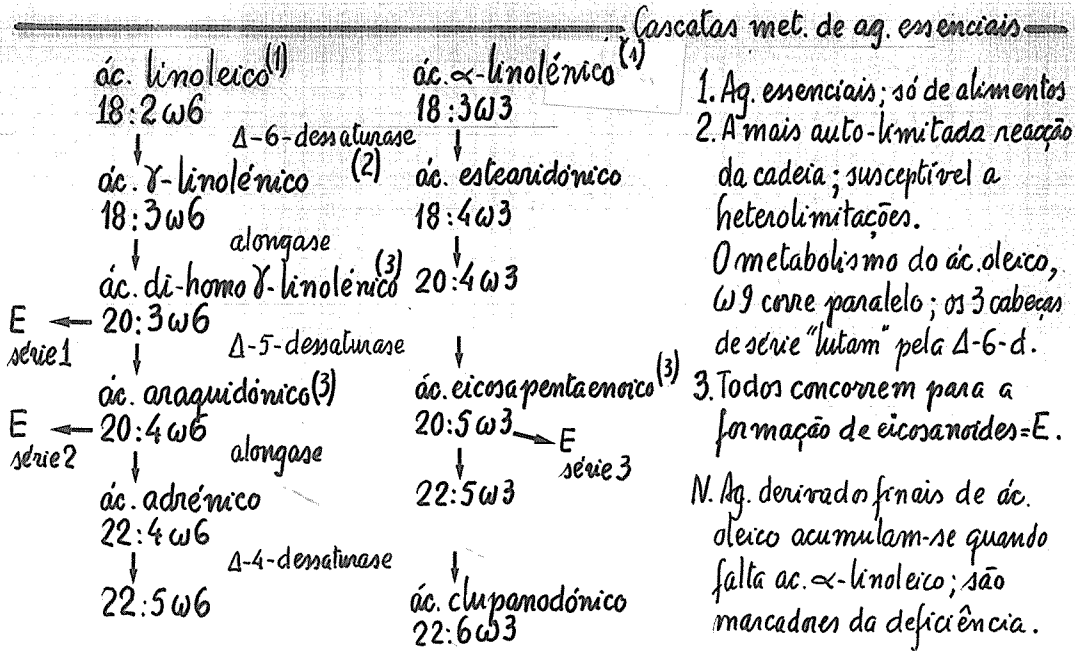 Cascatas met. de ag. essenciais
ác. linoleico(1)
18:2ω6
Δ-6-dessaturase
(2)
ác. γ-linolénico
18:3ω6
alongase
ác. di-homo γ-linolénico(3)
E
série 1
20:3ω6
Δ-5-dessaturase
ác. araquidónico(3)
E
série 2
20:4ω6
alongase
ác. adrénico
22:4ω6
Δ-4-dessaturase
22:5ω6
ác. α-linolénico(1)
18:3ω3
ác. estearidónico
18:4ω3
20:4ω3
ác. eicosapentaenoico(3)
20:5ω3
E
série 3
22:5ω3
ác. clupanodónico
22:6ω3
1. Ag. essenciais; só de alimentos
2. A mais auto-limitada reacção
da cadeia; susceptível a
heterolimitações.
O metabolismo do ác. oleico,
ω9 corre paralelo; os 3 cabeças
de série "lutam" pela Δ-6-d.
3. Todos concorrem para a
formação de eicosanoides=E.
N. Ag. derivados finais de ác.
oleico acumulam-se quando
falta ac. α-linoleico; são
marcadores da deficiência.